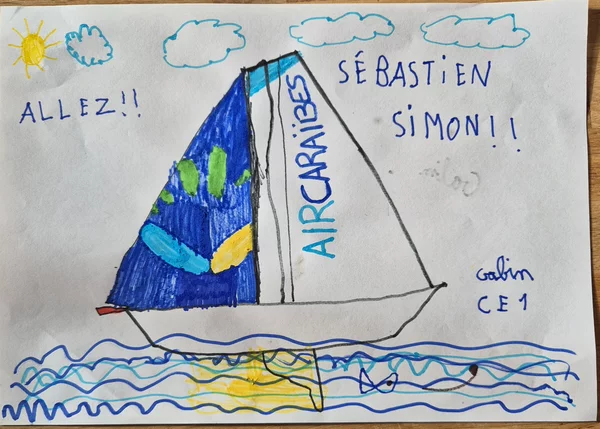 SÉBASTIEN
SiMON!!
ALLEZ!!
AIRCARAÏBES
Gabin
CE1